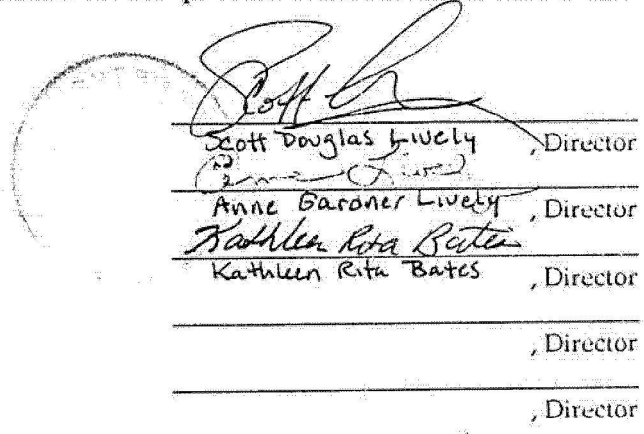 Scott Douglas Lively, Director
Anne Gardner Lively, Director
Kathleen Rita Bates
Kathleen Rita Bates, Director
, Director
, Director